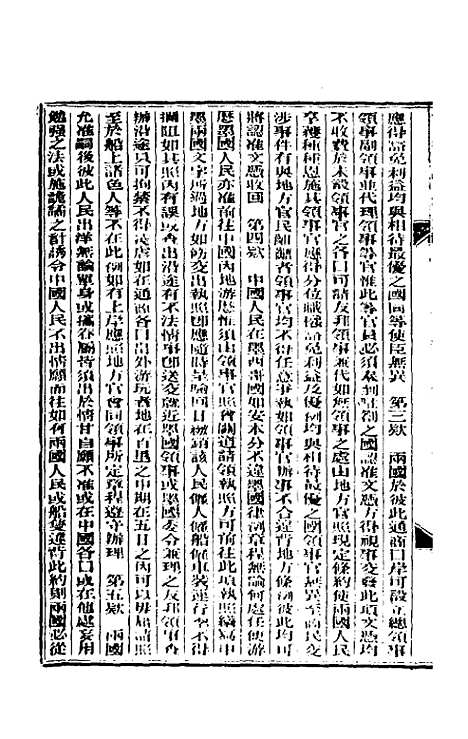 應得豁免利益均與相待最優之國同等使臣無異　第三款　兩國於彼此通商口岸可設立總領事
領事副領事並代理領事等官惟此等官員必須奉到駐劄之國認准文憑方得視事交發此項文憑均
不收費於未設領事官之各口可請友邦領事兼代如無領事之處由地方官照現定條約使兩國人民
享獲種種恩施其領事官應得分位職權豁免利益及優例均與相待最優之國領事官無異至商民交
涉事件有與地方官民齟齬者領事官均不得任意爭執如領事官辦事不合違背地方條例彼此均可
將認准文憑收回　第四款　中國人民在墨西哥國如安本分不違墨國律例章程無論何處任便游
歷墨國人民亦准前往中國內地游歷惟須由領事官照會關道請領執照方可前往此項執照繕寫中
墨兩國文字所過地方如飭交出執照即應隨時呈驗回日繳銷該人民僱人僱船僱車裝運行李不得
攔阻如其照內有誤或查出沿途有不法情事即送交就近墨國領事或墨國委令兼理之友邦領事查
辦沿途只可拘禁不得凌虐如在通商各口岸外游玩者地在百里之中期在五日之內可以毋庸請照
至於船上諸色人等不在此例如有上岸應照地方官會同領事所定章程遵守辦理　第五款　兩國
允准嗣後彼此人民出洋無論單身或攜眷屬皆須出於情甘自願不准或在中國各口或在他處妄用
勉強之法或施詭譎之計誘令中國人民不出情願而往如有兩國人民或船隻違背此約則兩國必從